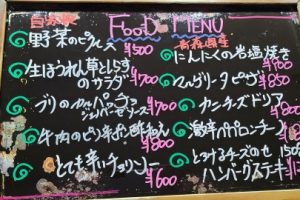 自家製
FOOD MENU
野菜のピクルス ¥500
生ほうれん草としらすのサラダ ¥700
ブリのカルパッチョ ¥700
牛肉のピリ辛 ¥800
とても辛いチョリソー ¥600
青森県産
にんにくの岩塩焼き ¥400
マルゲリータピザ ¥850
カニチーズドリア ¥800
激辛ペペロンチーノ
とろけるチーズのせ 150g
ハンバーグステーキ